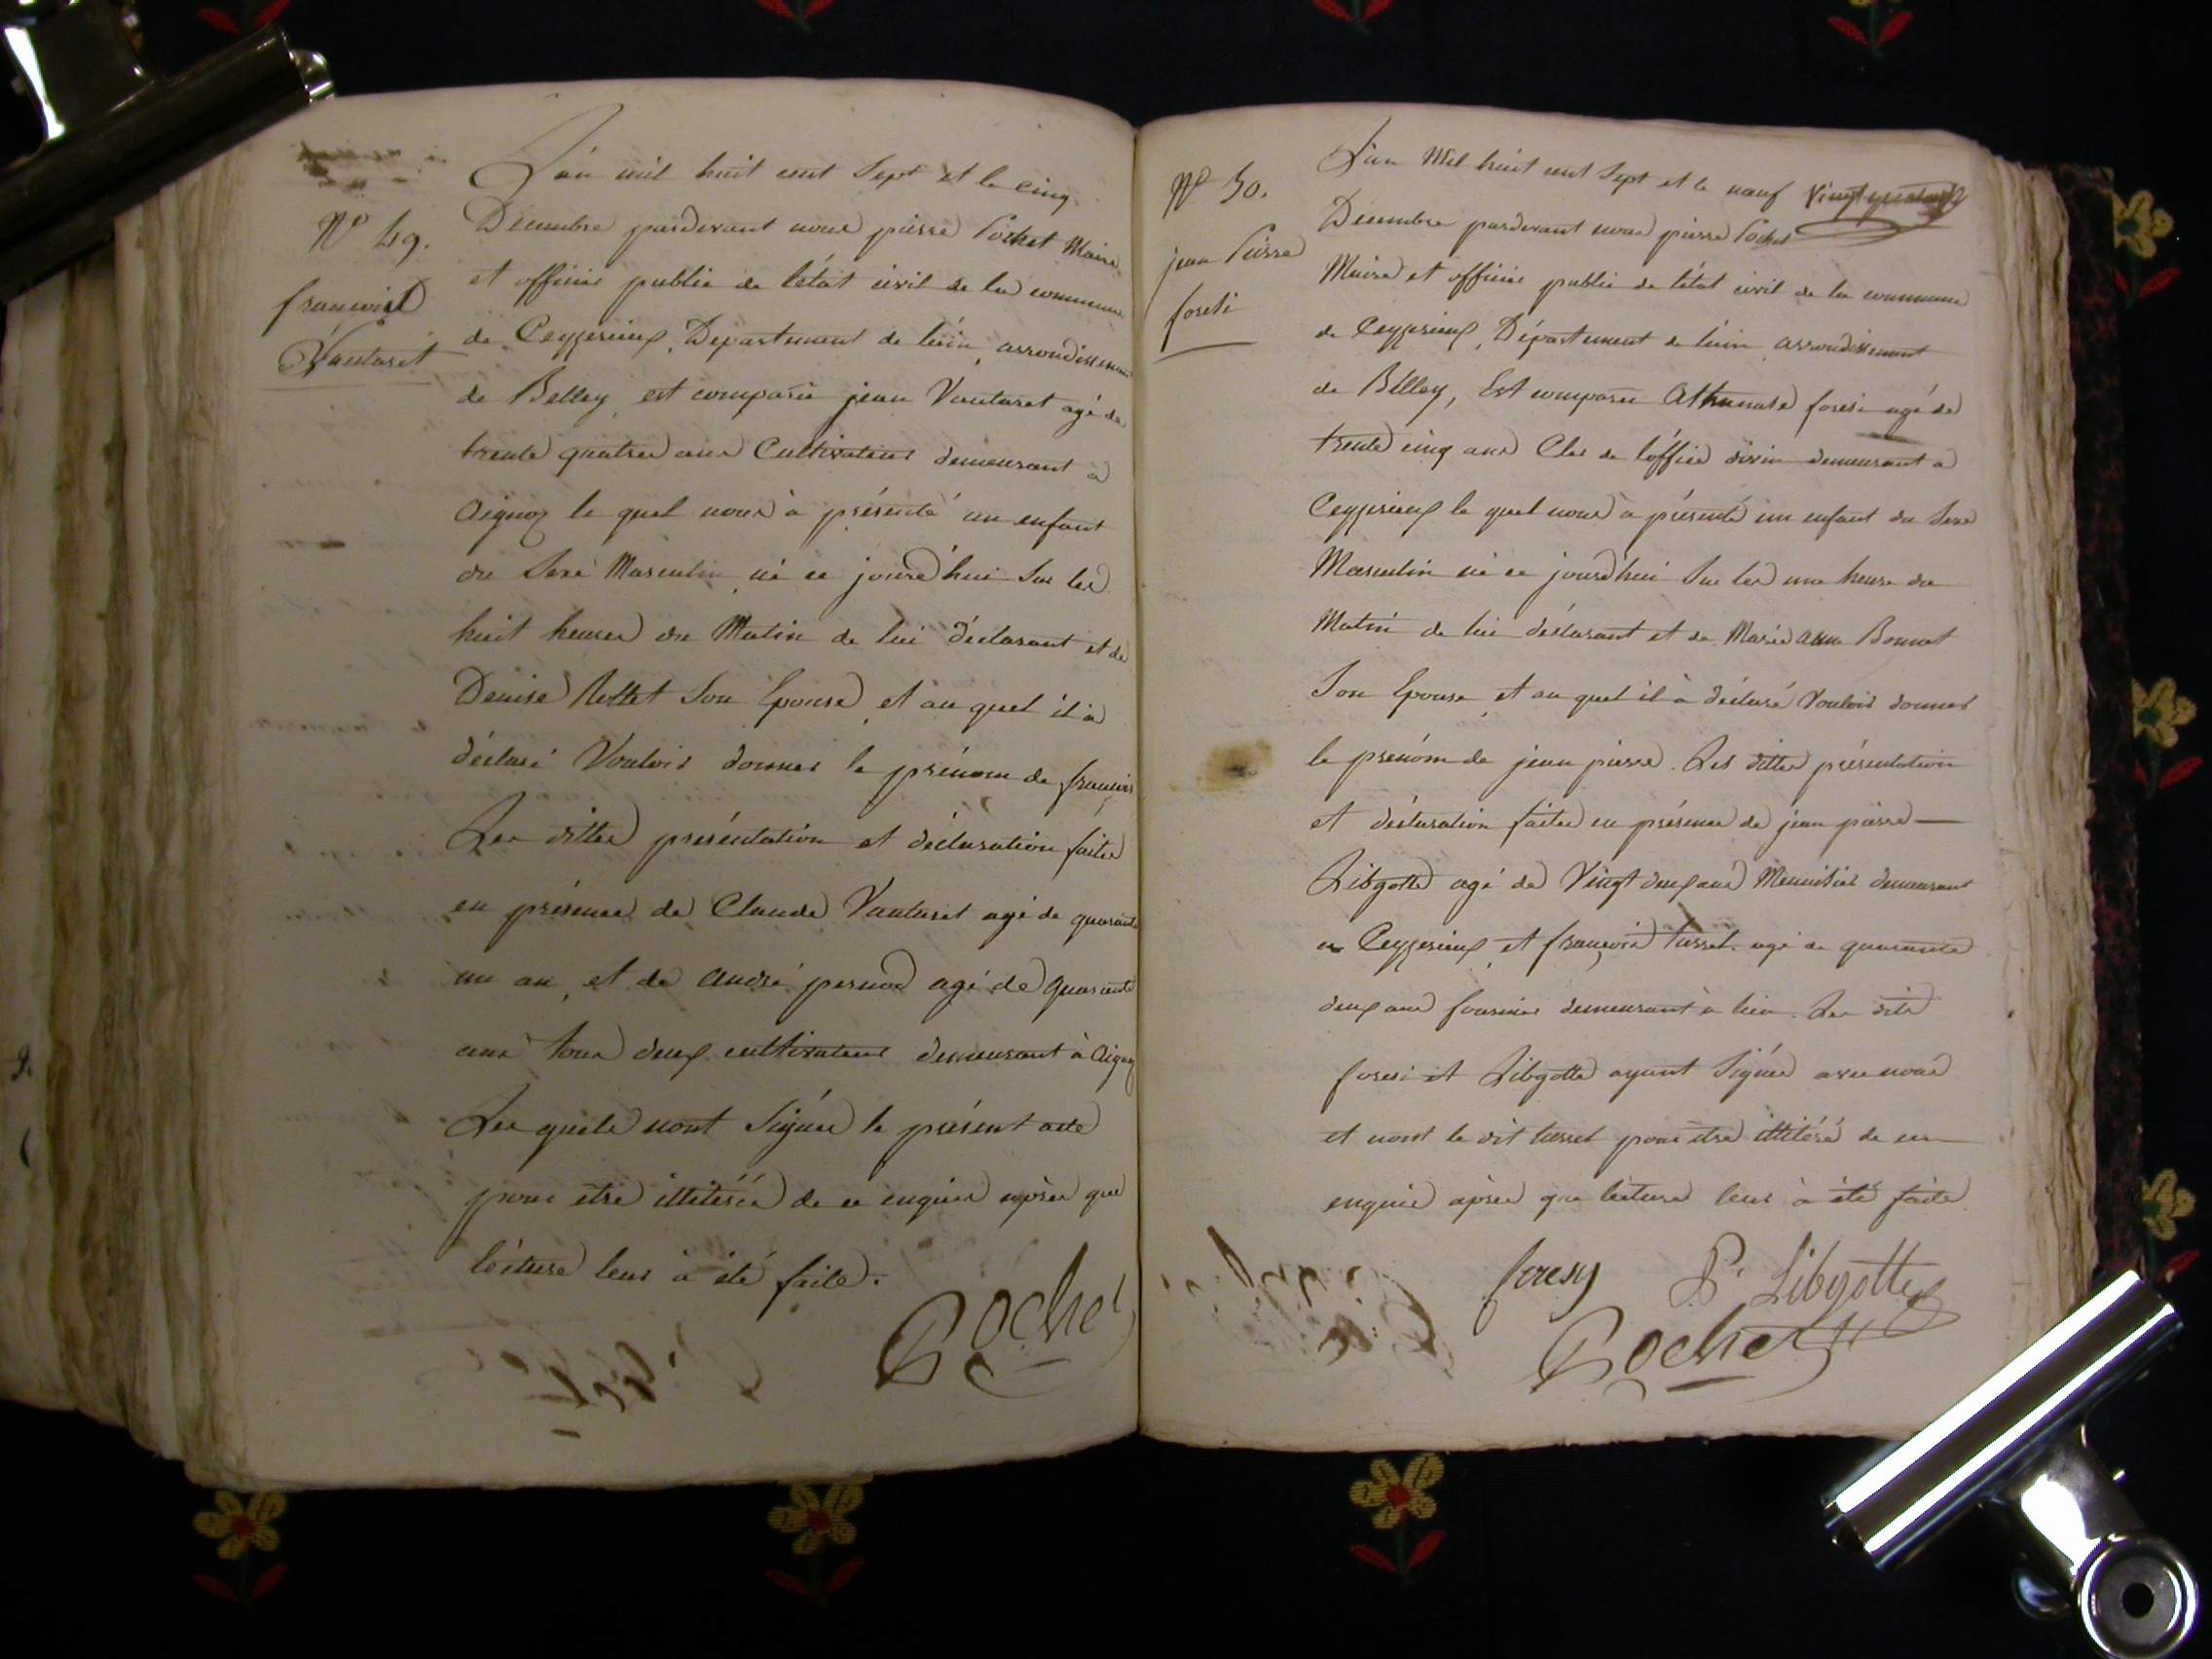 N.o 49.
francois
Vautaret
L'an mil huit cent Sept et le cinq
Décembre pardevant nous pierre Pochet Maire
et officier public de l'état civil de la commune
de Ceyzerieux, Département de l'ain, arrondissement
de Belley, est comparu jean Vautaret agé de
trente quatre ans Cultivateur demeurant a
aignoz le quel nous à présenté un enfant
du Sexe Masculin, né ce jourd'hui Sur les
huit heures du Matin de lui déclarant et de
Denise Son Epouse, et au quel il a
déclaré Vouloir donner le prénom de françois
Les dittes présentation et déclaration faites
en présence de Claude Vautaret agé de quarante
un an, et de andré pernod agé de quarante
ans tous deux cultivateurs demeurant à aignoz
Les quels n'ont Signés le présent acte
pour etre illitérés de ce enquis après que
lécture leur à été faite.
Pochet
N.o 50.
jean Pierre
foresi
L'an Mil huit cent Sept et le neuf
Décembre pardevant nous pierre Pochet
Maire et officier public de l'état civil de la commune
de Ceyzerieux, Département de l'ain arrondissement
de Belley, Est comparu Athanase foresi agé de
trente cinq ans Clerc de l'office divin demeurant a
Ceyzerieux le quel nous à présenté un enfant du Sexe
Masculin né ce jourd'hui Sur les une heure du
Matin de lui déclarant et de Marie anne Bonnot
Son Epouse, et au quel il à déclaré Vouloir donner
le prenóm de jean pierre. Les dittes présentation
et déclaration faites en présence de jean pierre —
Libgotte agé de Vingt deux ans Menuisier demeurant
a Ceyzerieux, et françois tasset agé de quarante
deux ans fournier demeurant à lieu. Les dits
foresi et Libgotte ayant Signés avec nous
et nont le dit tasset pour etre illitéré de ce
enquis après que lecture leur à été faite.
foresy P. Libgotte
Pochet